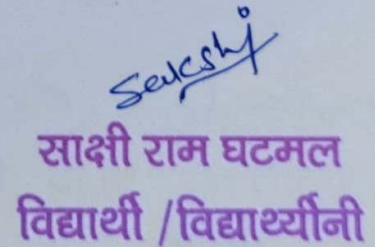 Sakshi
साक्षी राम घटमल
विद्यार्थी /विद्यार्थ्यीनी